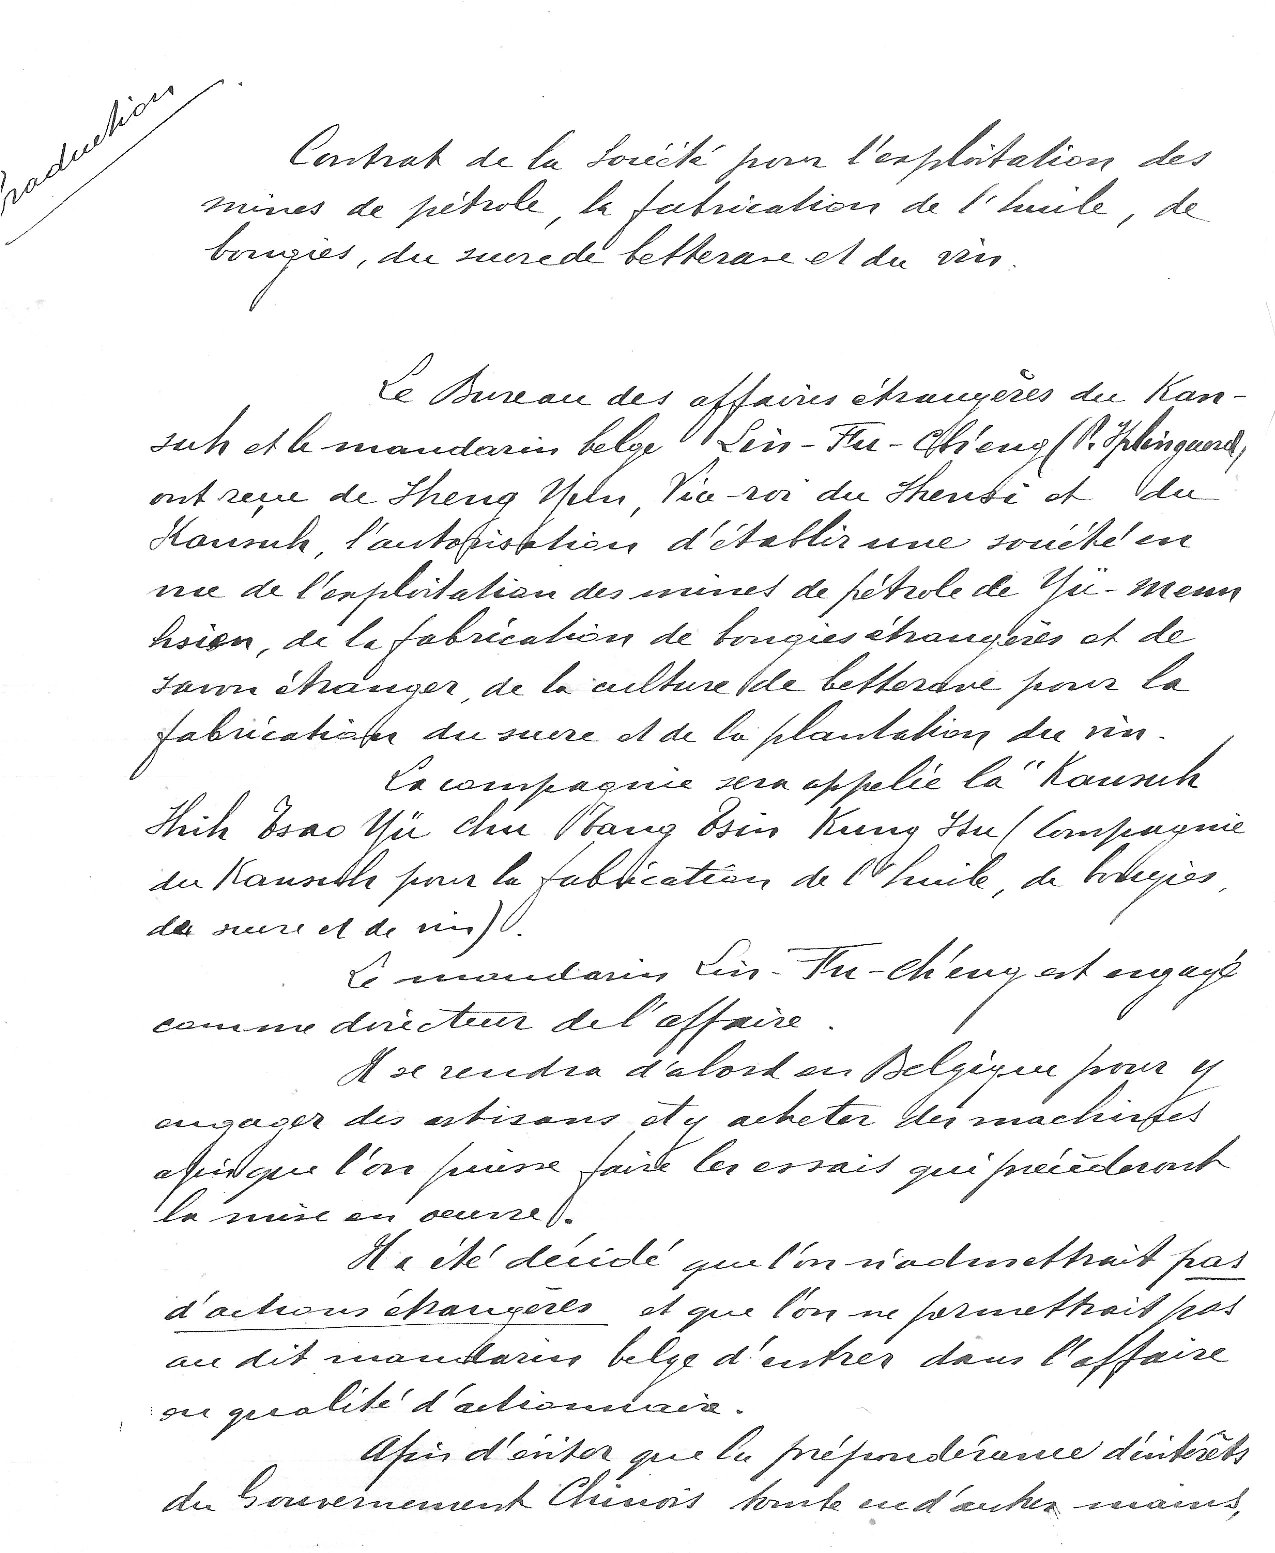 Traduction
Contrat de la Société pour l'exploitation des
mines de pétrole, la fabrication de l'huile, de
bougies, du sucre de betterave et du vin.
Le Bureau des affaires étrangères du Kan-
suh et le mandarin belge Lin-Fu-Ch'eng (P. Splingaerd)
ont reçu de Sheng Yun, Vice-roi du Shensi et du
Kansuh, l'autorisation d'établir une société en
vue de l'exploitation des mines de pétrole de Yü-menn
hsien, de la fabrication de bougies étrangères et de
savon étranger, de la culture de betterave pour la
fabrication du sucre et de la plantation du vin.
La compagnie sera appelée la "Kansuh
Shih Tsao Yü Chu Tang Tsin Kung Szu (Compagnie
du Kansuh pour la fabrication de l'huile, de bougies,
de sucre et de vin).
Le mandarin Lin-Fu-Ch'eng est engagé
comme directeur de l'affaire.
Il se rendra d'abord en Belgique pour y
engager des artisans et y acheter des machines
afin que l'on puisse faire les essais qui précéderont
la mise en oeuvre.
Il a été décidé que l'on n'admettrait pas
d'actions étrangères et que l'on ne permettrait pas
au dit mandarin belge d'entrer dans l'affaire
en qualité d'actionnaire.
Afin d'éviter que la prépondérance d'intérêts
du Gouvernement Chinois tombe en d'autres mains,